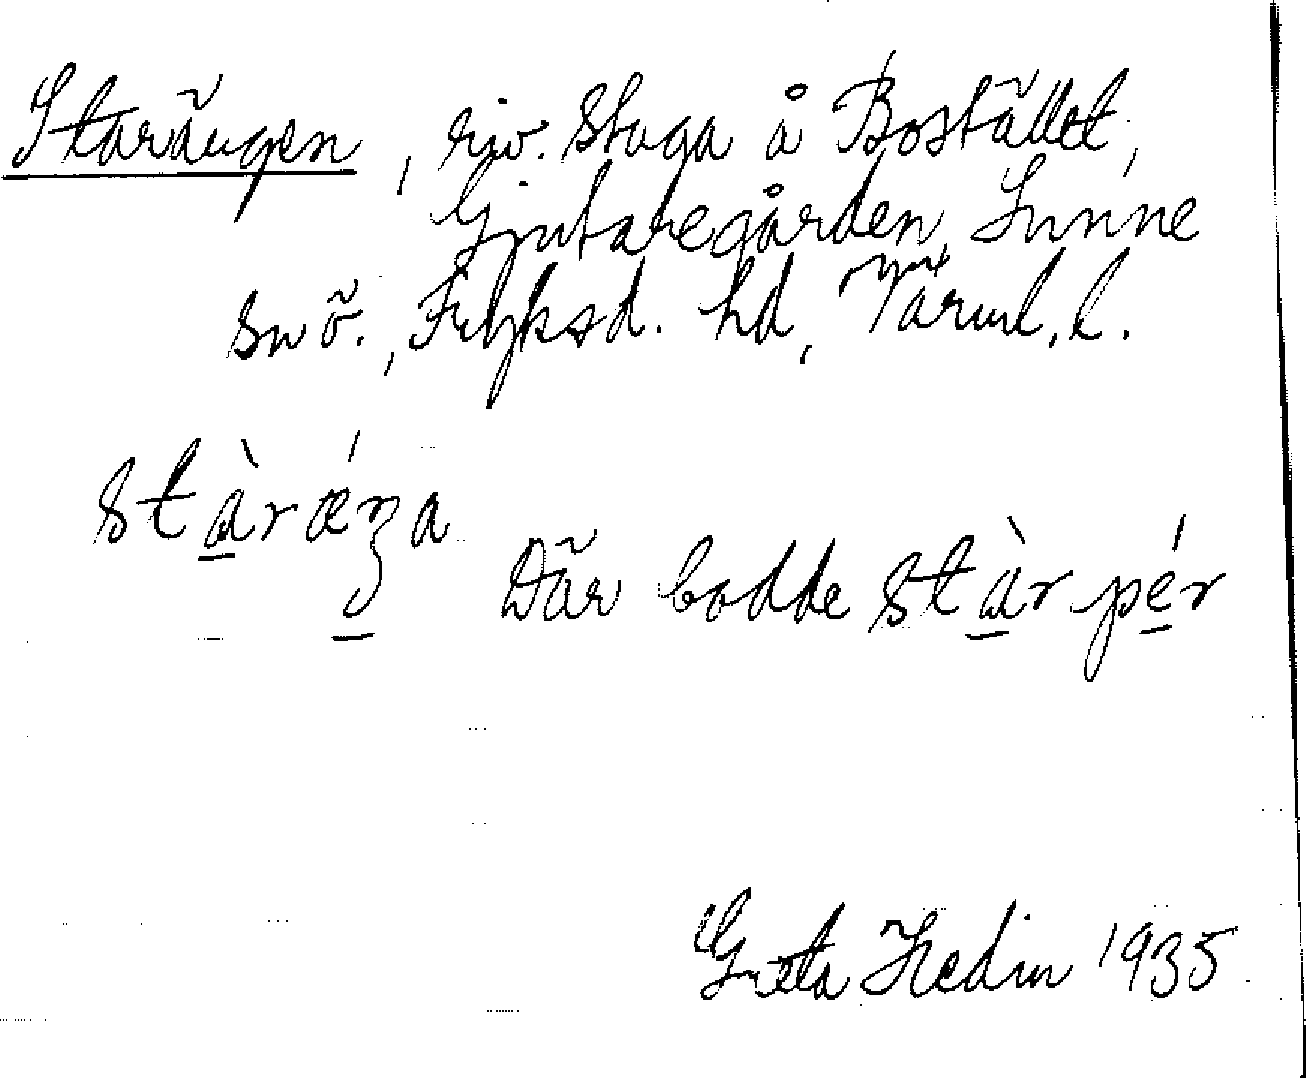 Starängen, riv. stuga å Bostället,
Gjutaregården, Sunne
sn ö., Fryksd. hd, Värml. l.
stàrǽŋa
Där bodde stàrpér
Greta Hedin 1935